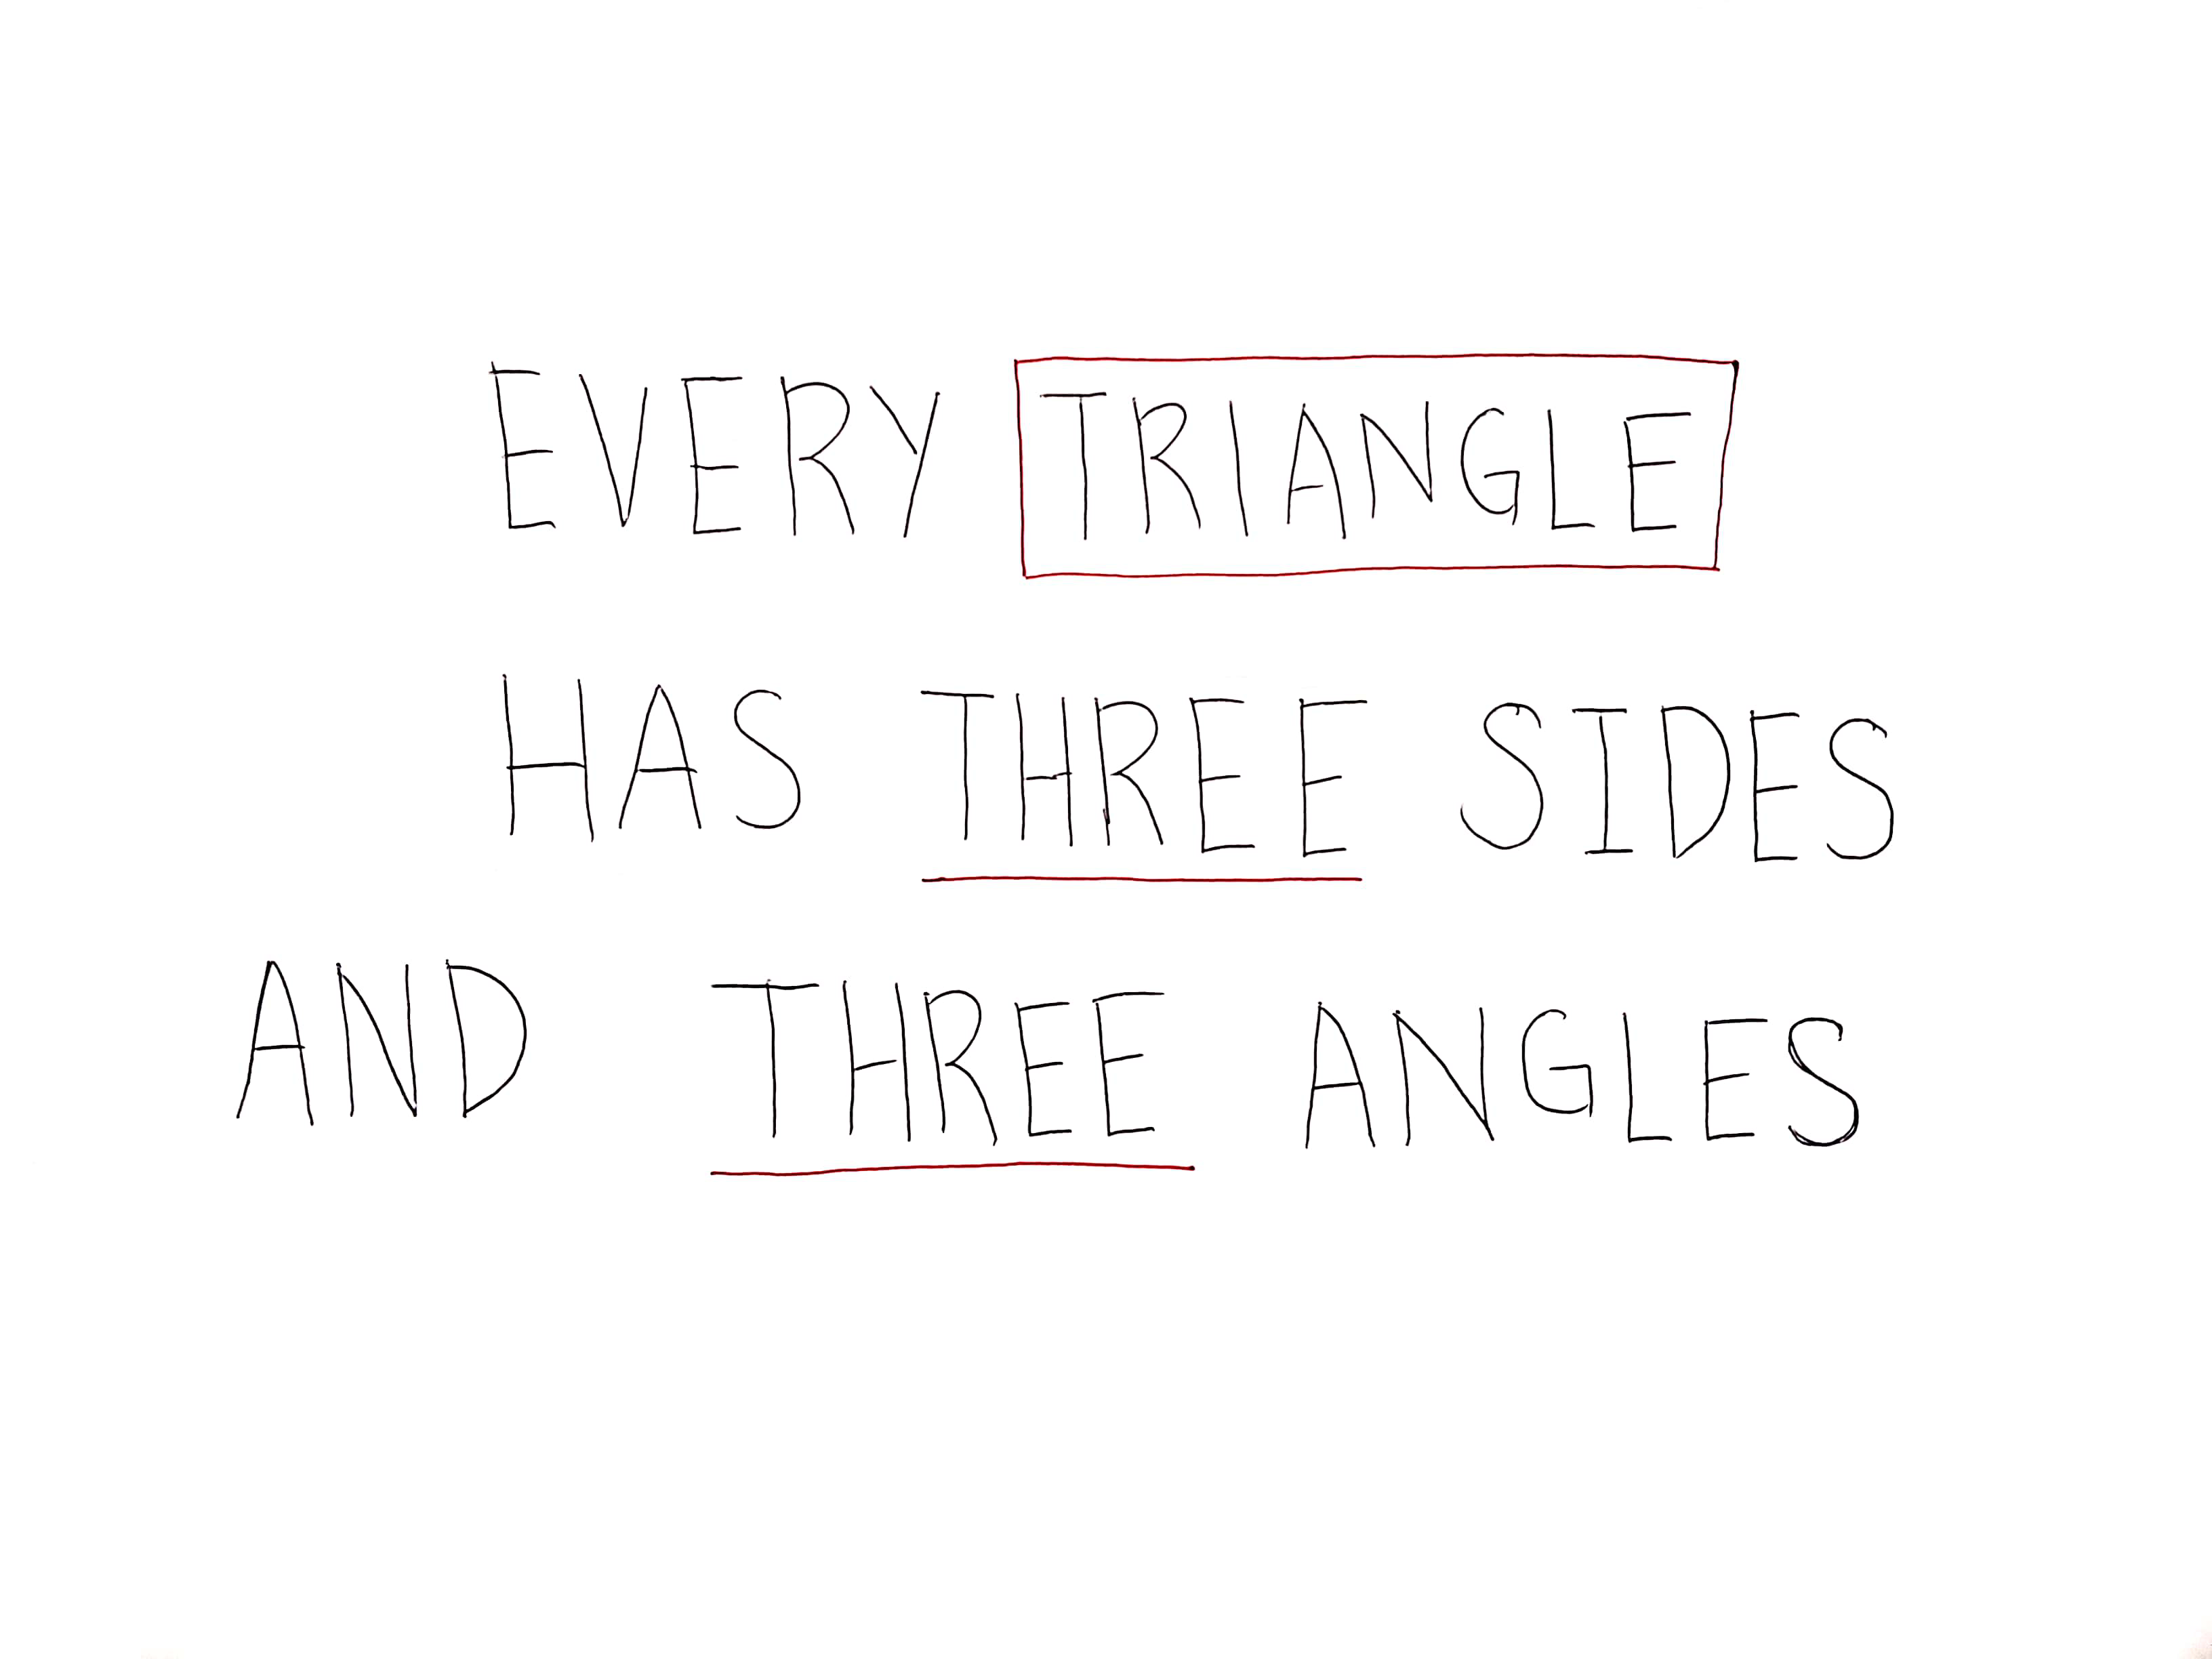 EVERY TRIANGLE
HAS THREE SIDES
AND THREE ANGLES